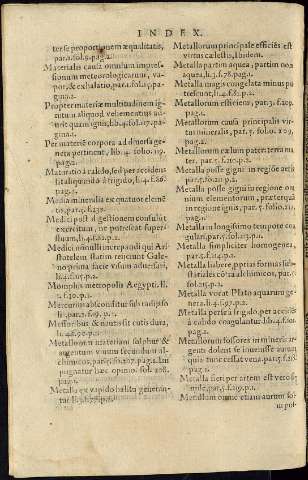 INDEX.
ter se proportionem æqualitatis,
par.1.fol.9.pag.2.
Materialis causa omnium impres-
sionum meteorologicarum, va-
por, & exhalatio, par.2.fol.15. pa-
gina.1.
Propter materiæ multitudinem ig-
nitum aliquod vehementius au-
urit quam ignis, lib.4.fol.117. pa-
gina.2.
Per materiæ corpora ad diuersa ge-
nera pertinent, lib.4. folio. 119.
pag.1.
Maturatio à calido, sed per acciden
sit aliquando à frigido, lib.4.f.86.
pag.1.
Media mineralia ex quatuor elemē
tis, par.5.f.231.
Medici post digestionem consulūt
exercitium, ne putrescat super-
fluum, li.4.f.82.p.1.
Medici nonnulli increpandi qui Ari
stotelem statim reijciunt Gale-
no prima facie visum aduersari,
lib.4.f.112.p.1.
Memphis metropolis Ægypti, li.
1.f.30.p.1.
Mercurius absconditur sub radijs so
lis, par.2.f.19. p. 1.
Messoribus & nautis sit cutis dura,
li.4.f.
Metallorum materiam sulphur &
argentum viuum secundum al-
chimicos, par.5.f.207.pag.2. Im
pugnatur hæc opinio. fol. 208.
pag.1.
Metalla ex vapido halitu generan-
tur, li.3.f.78.p.1.
Metallorum principale efficiēs est
virtus cælestis, ibidem.
Metalla partim aquea, partim non
aquea, li.3.f.78.pag.1.
Metalla magis congelata minus pu
trescunt, li.4.f.82.p.2.
Metallorum efficiens, par.5.f.209.
pag.1.
Metallorum causa principalis vir-
tus mineralis, par.5. folio. 209.
pag.2.
Metallorum cælum pater: terra ma
ter, par.5.f.210.p.1.
Metalla posse gigni in regione aëris
par.5.f.210.p.2.
Metalla posse gigni in regione om
nium elementorum, præterquā
in regione ignis, par.5. folio.211.
pag.1.
Metalla in longissimo tempore coa
gulari, par.5.fol.213.p.1.
Metalla simpliciter homogenea,
par.5.f.214.p.1.
Metalla habere proprias formas sub
stātiales cōtra alchimicos, par.5.
fol.215.p.1.
Metalla vocat Plato aquarum ge-
nera, li.4.f.97.p.1.
Metalla persæpe à frigido, per acciēs
à calido coagulantur, lib.4.f.99.
pag.1.
Metallorum fossores in mineris ar-
genti dolent se inuenisse auran
quia tunc cessat vena, par.5.f.218.
pag.1.
Metalla fieri per artem est verosi
mile, par.5.f.219.p.1.